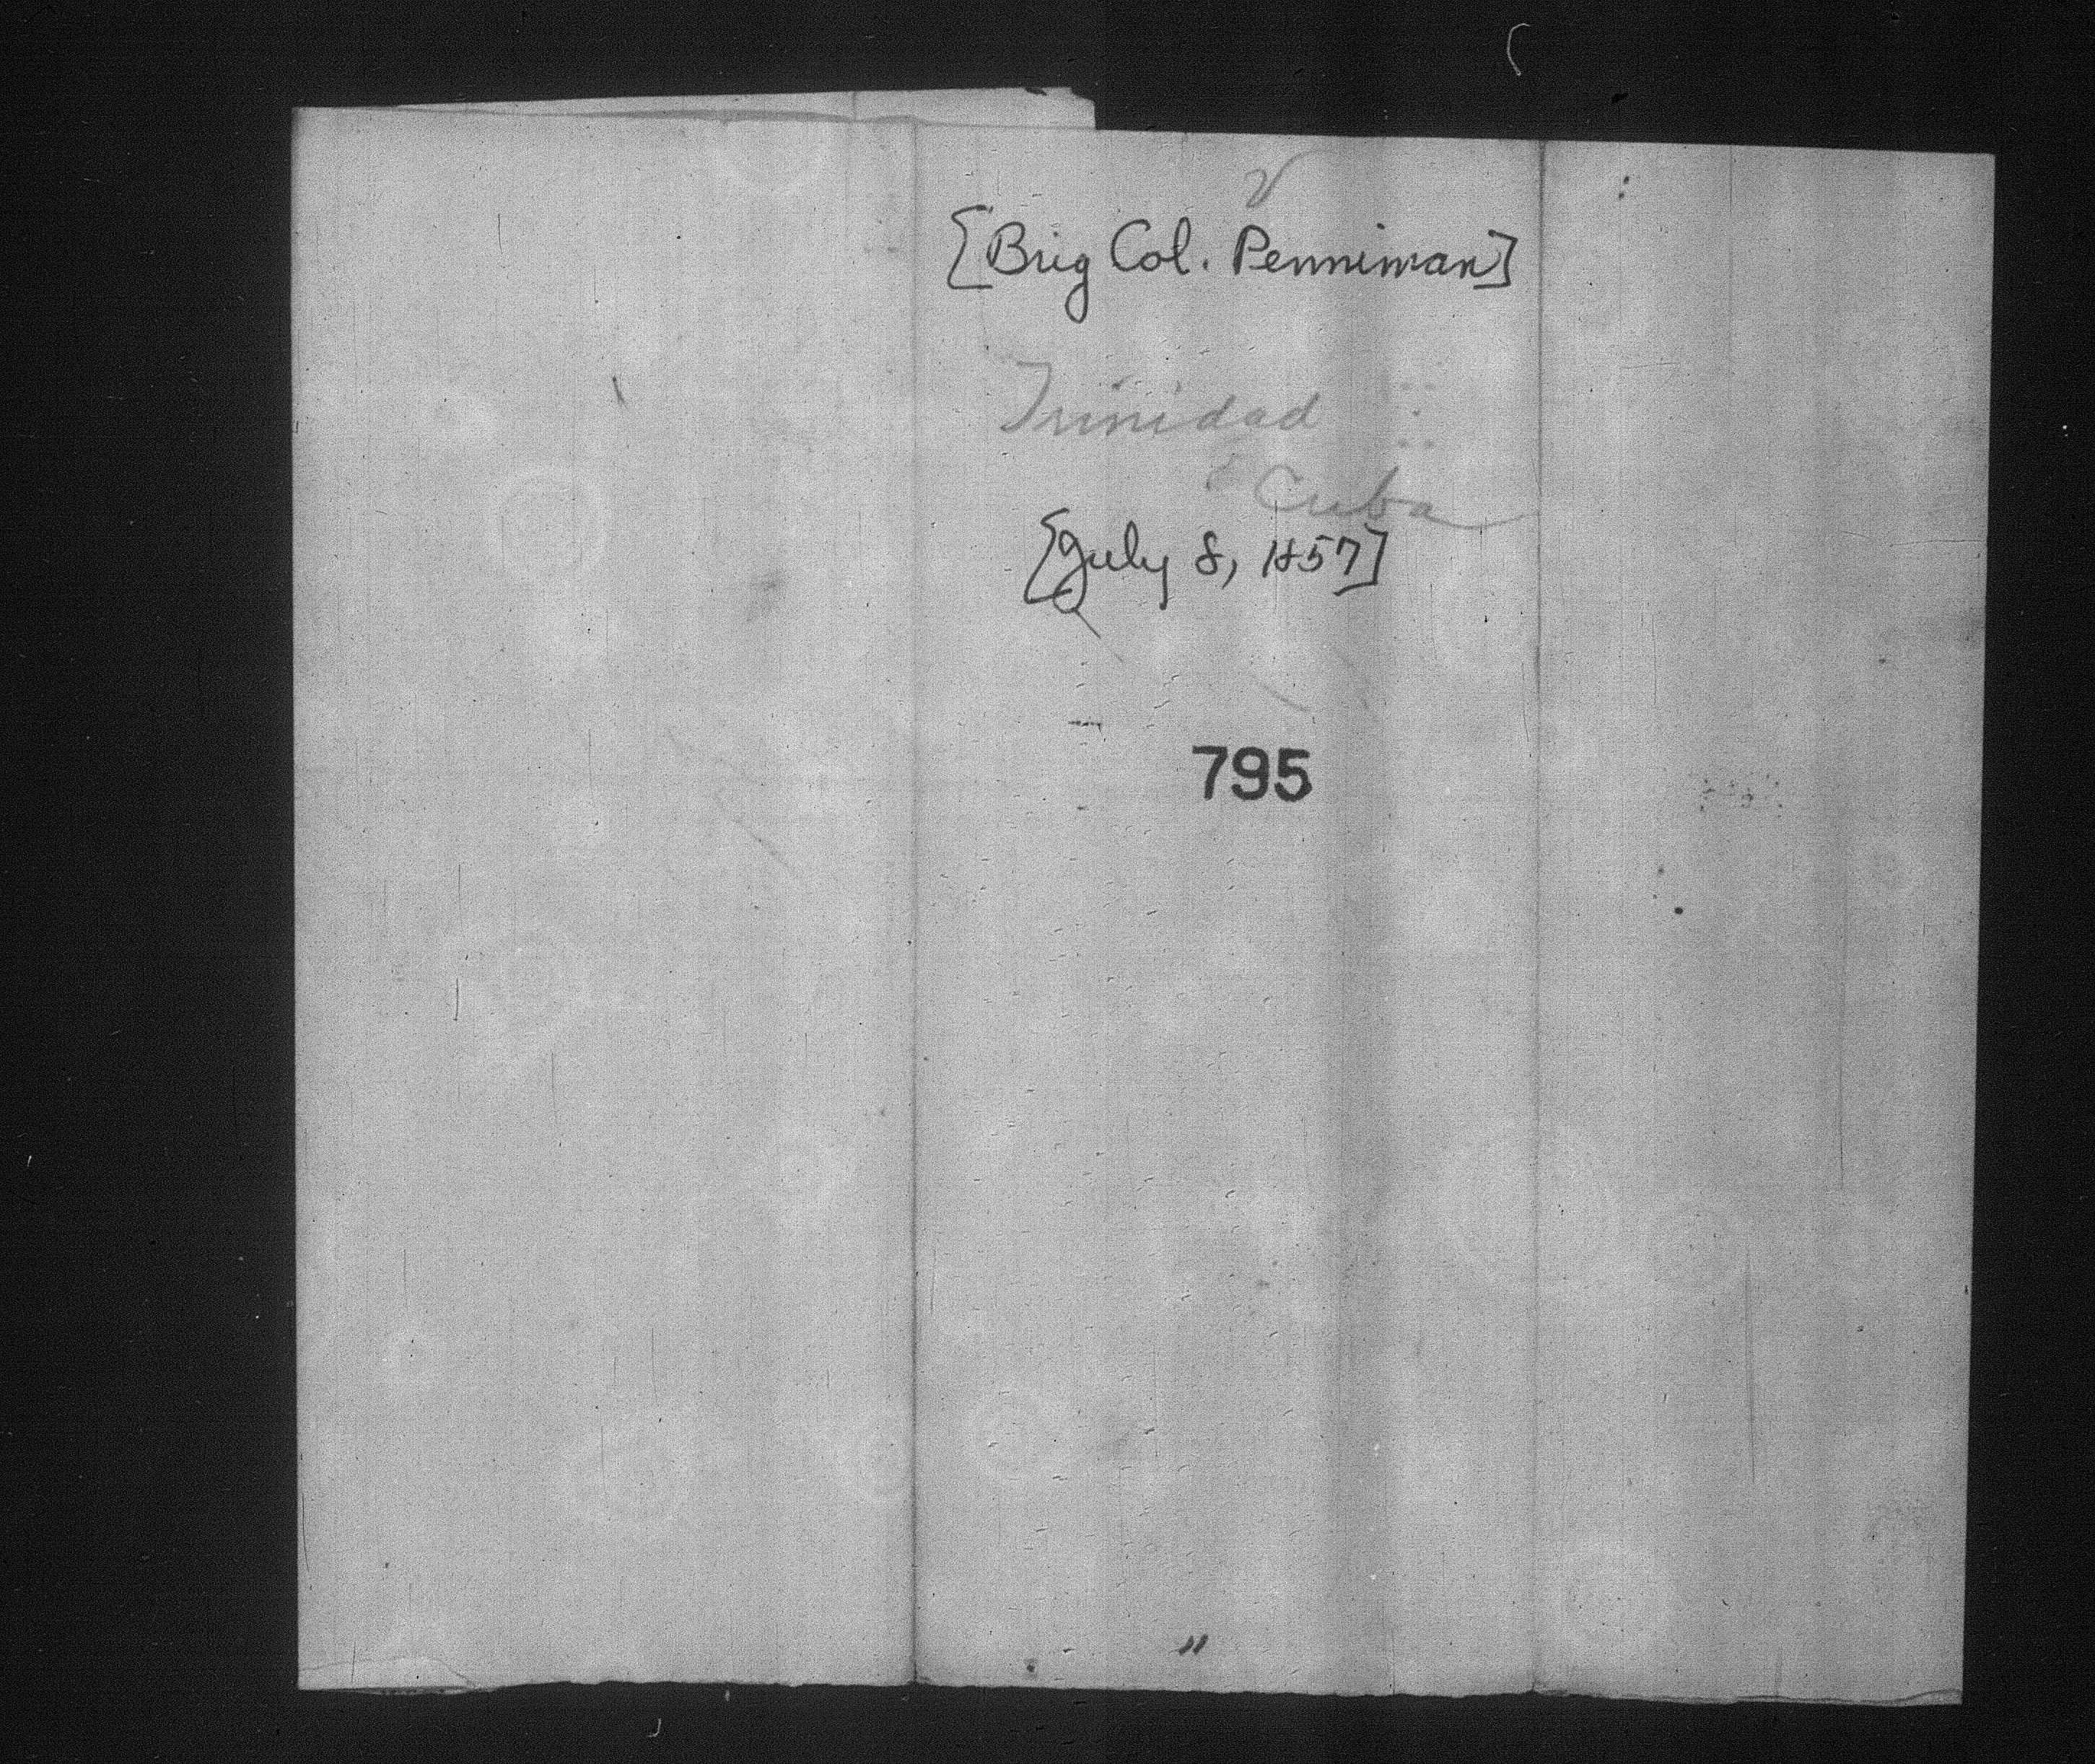 [Brig Col. Penniman]
Trinidad
Cuba
[July 8, 1857]
795